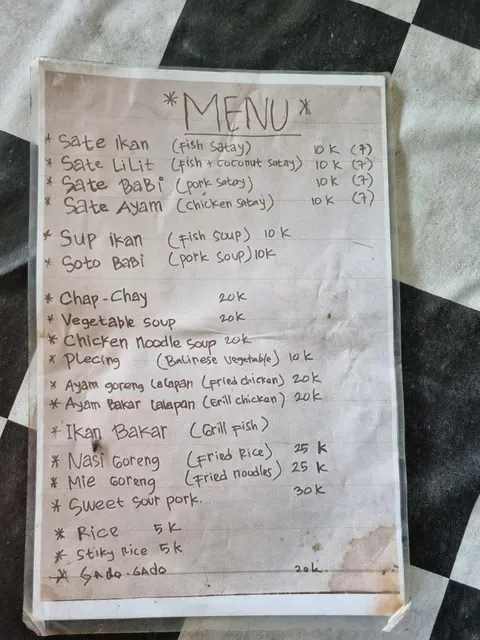 * MENU *
* Sate Ikan (Fish Satay) 10 K (7)
* Sate LiLit (Fish + coconut satay) 10 K (7)
* Sate BaBi (pork satay) 10 K (7)
* Sate Ayam (chicken satay) 10 K (7)
* Sup ikan (Fish soup) 10 K
* Soto Babi (pork soup) 10K
* Chap-Chay 20k
* Vegetable soup 20k
* Chicken noodle soup 20k
* Plecing (Balinese vegetable) 10 k
* Ayam goreng lalapan (Fried chicken) 20k
* Ayam Bakar lalapan (Grill chicken) 20k
* Ikan Bakar (Grill fish)
* Nasi Goreng (Fried Rice) 25 k
* Mie Goreng (Fried noodles) 25 k
* Sweet sour pork. 30k
* Rice 5 K
* Stiky Rice 5 k
* Gado-Gado 20k